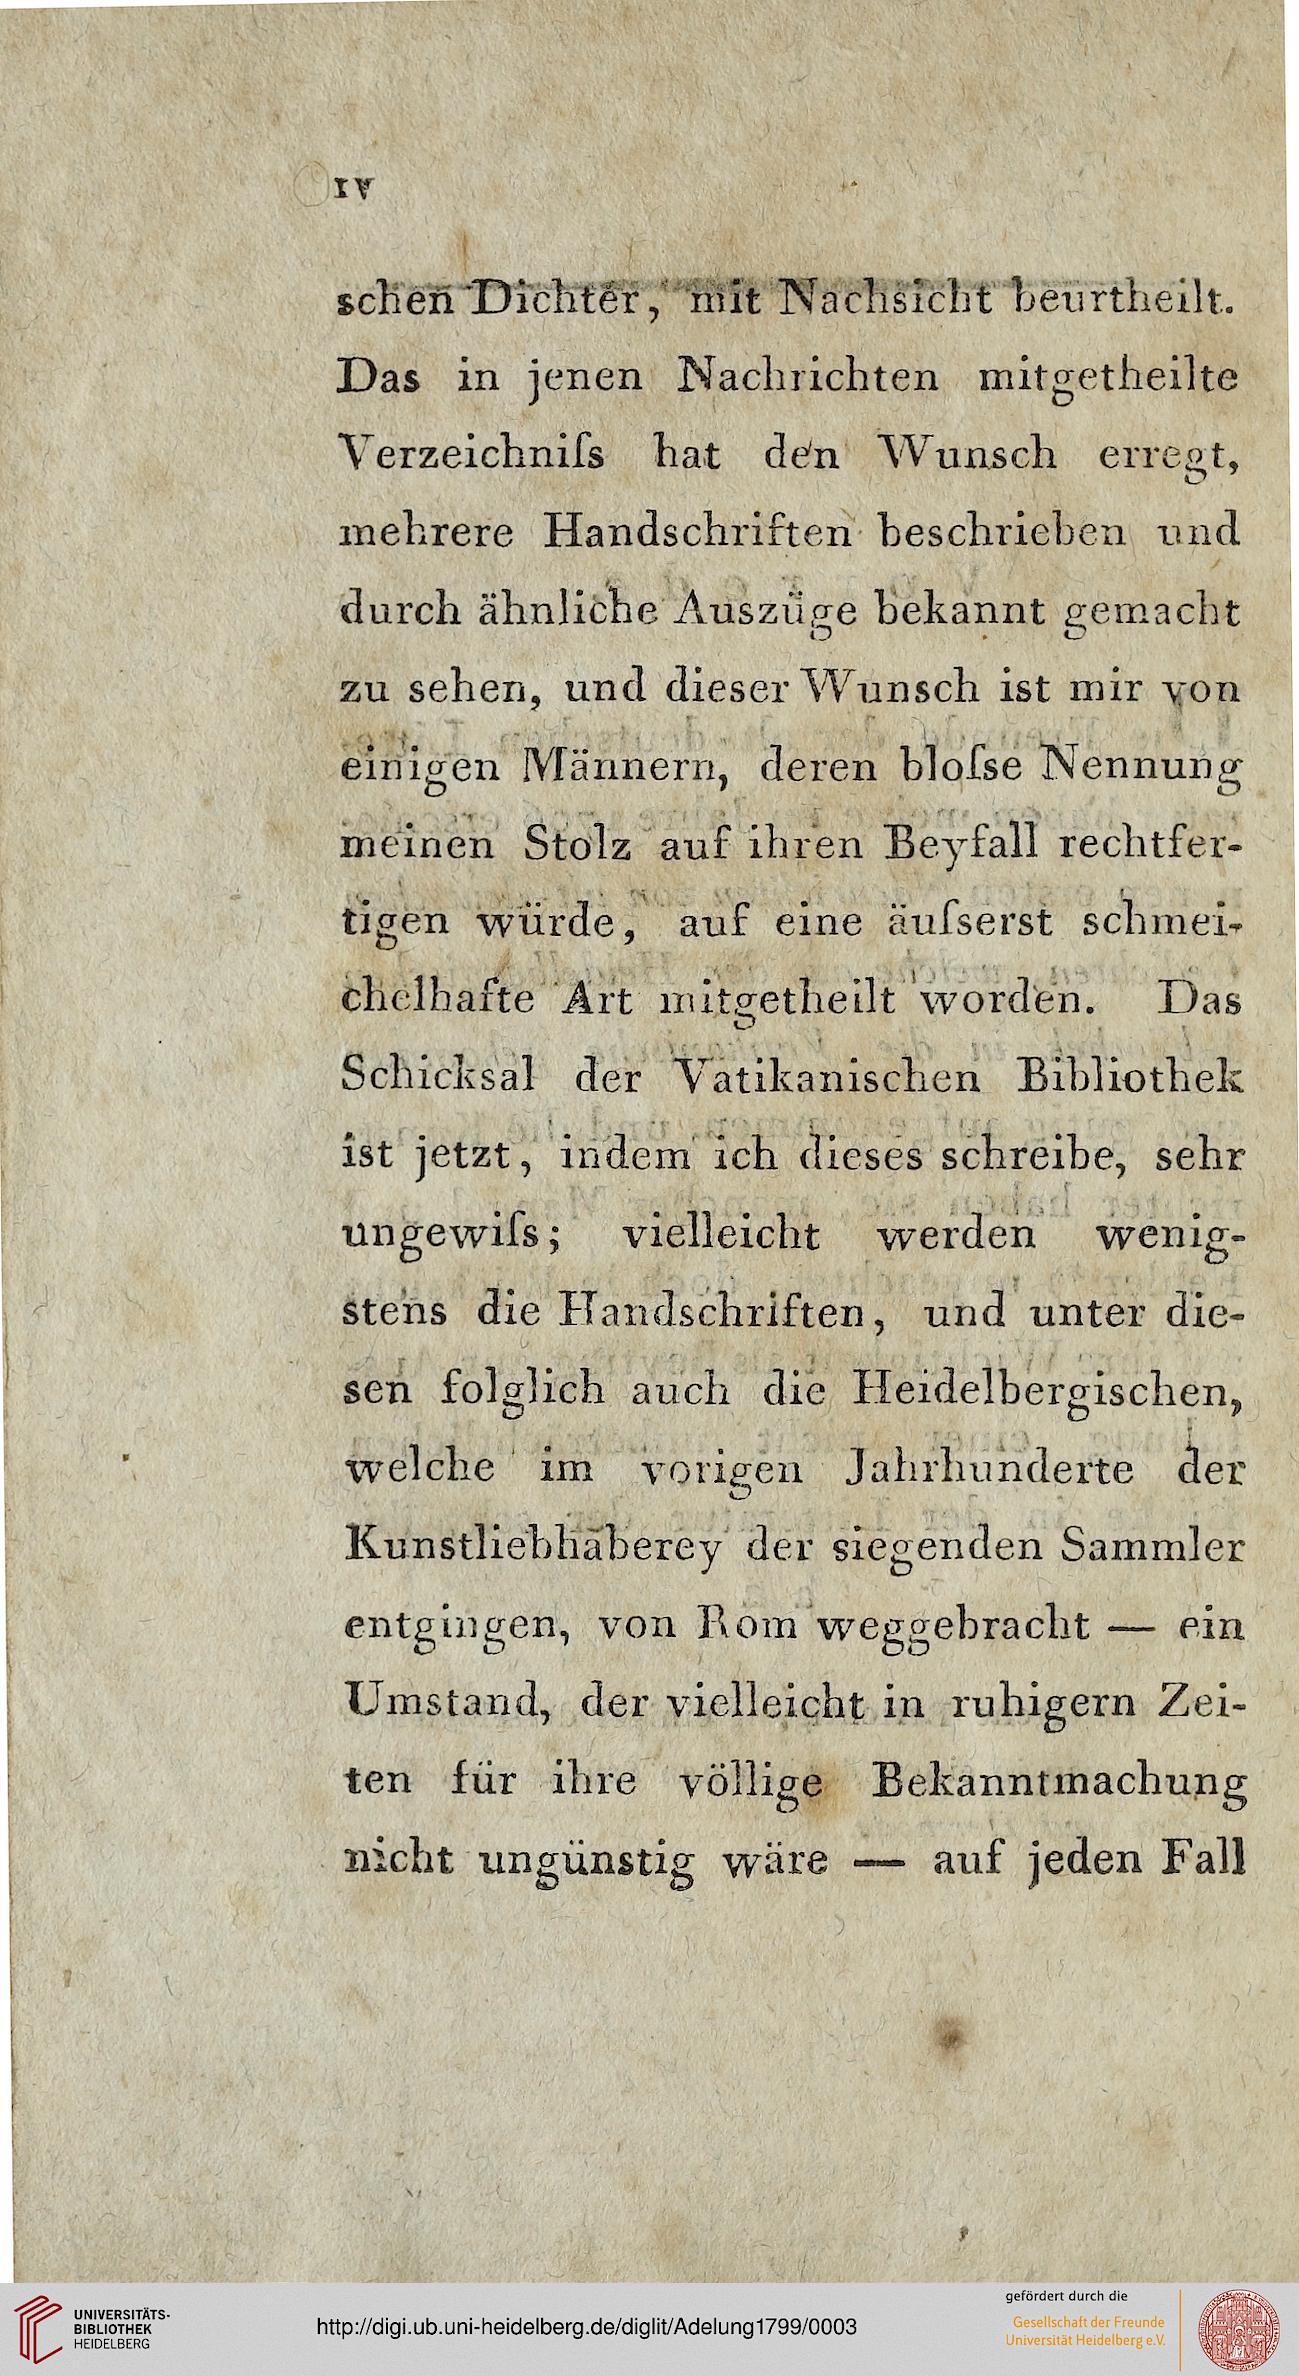 IV
schen Dichter, mit Nachsicht beurtheilt.
Das in jenen Nachrichten mitgetheilte
Verzeichniſs hat den Wunsch erregt,
mehrere Handschriften beschrieben und
durch ähnliche Auszüge bekannt gemacht
zu sehen, und dieser Wunsch ist mir von
einigen Männern, deren bloſse Nennung
meinen Stolz auf ihren Beyfall rechtfer-
tigen würde, auf eine äuſserst schmei-
chelhafte Art mitgetheilt worden. Das
Schicksal der Vatikanischen Bibliothek
ist jetzt, indem ich dieses schreibe, sehr
ungewiſs; vielleicht werden wenig-
stens die Handschriften, und unter die-
sen folglich auch die Heidelbergischen,
welche im vorigen Jahrhunderte der
Kunstliebhaberey der siegenden Sammler
entgingen, von Rom weggebracht — ein
Umstand, der vielleicht in ruhigern Zei-
ten für ihre völlige Bekanntmachung
nicht ungünstig wäre — auf jeden Fall
UNIVERSITÄTS-
BIBLIOTHEK
HEIDELBERG
http://digi.ub.uni-heidelberg.de/diglit/Adelung1799/0003
gefördert durch die
Gesellschaft der Freunde
Universität Heidelberg e.V.